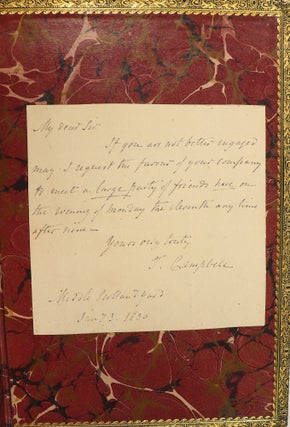 My dear Sir
If you are not better engaged
may I request the favour of your company
to meet a large party of friends here on
the evening of Monday the eleventh any time
after nine —
Yours very truly
T. Campbell
Middle Scotland yard
1830